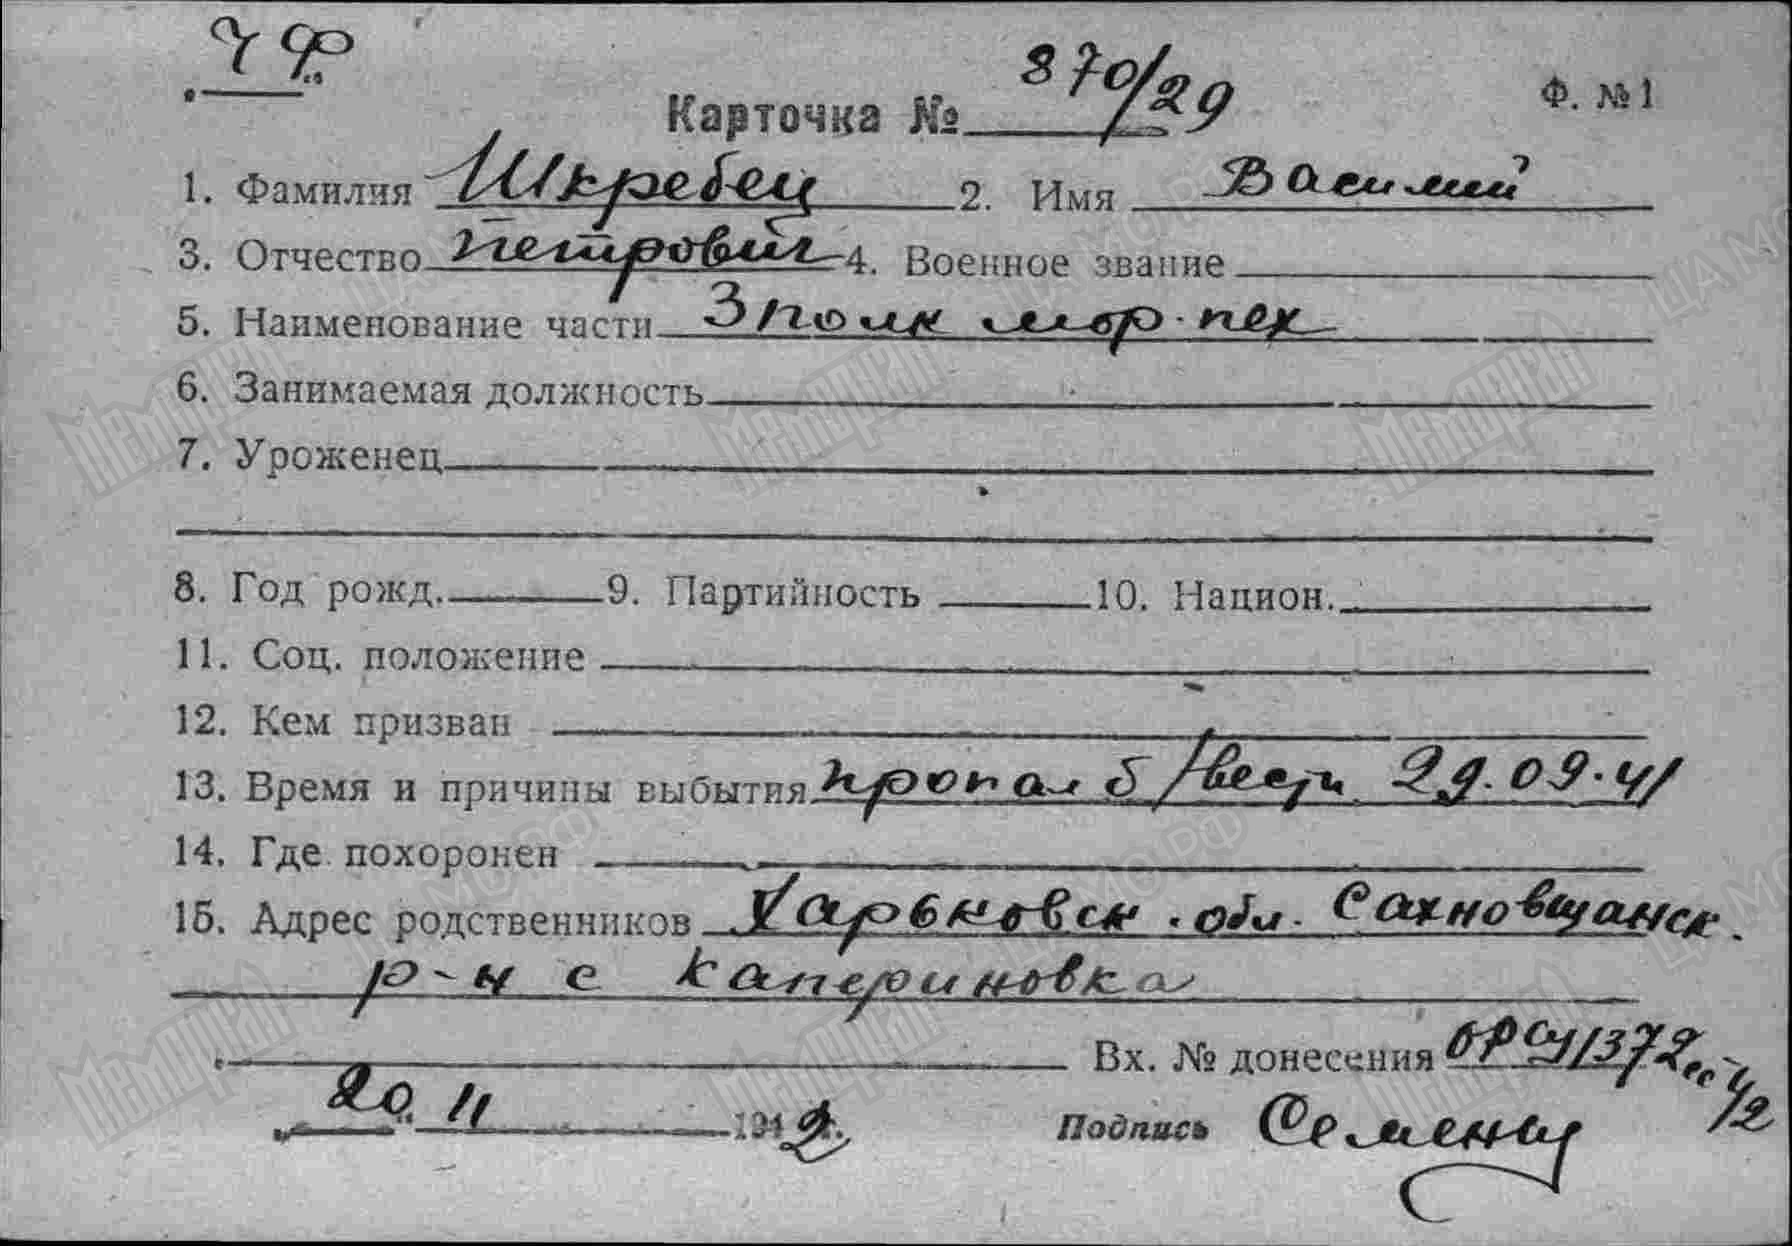 ЧФ
Карточка № 870/29 Ф. № 1
1. Фамилия Шкребец 2. Имя Василий
3. Отчество Петрович 4. Военное звание
5. Наименование части 3 полк мор. пех
6. Занимаемая должность
7. Уроженец
8. Год рожд. 9. Партийность 10. Национ.
11. Соц. положение
12. Кем призван
13. Время и причины выбытия пропал б/вести 29.09.41
14. Где похоронен
15. Адрес родственников Харьковск. обл. Сахновщанск.
р-н с Катериновка
Вх. № донесения
20 11 1942. Подпись